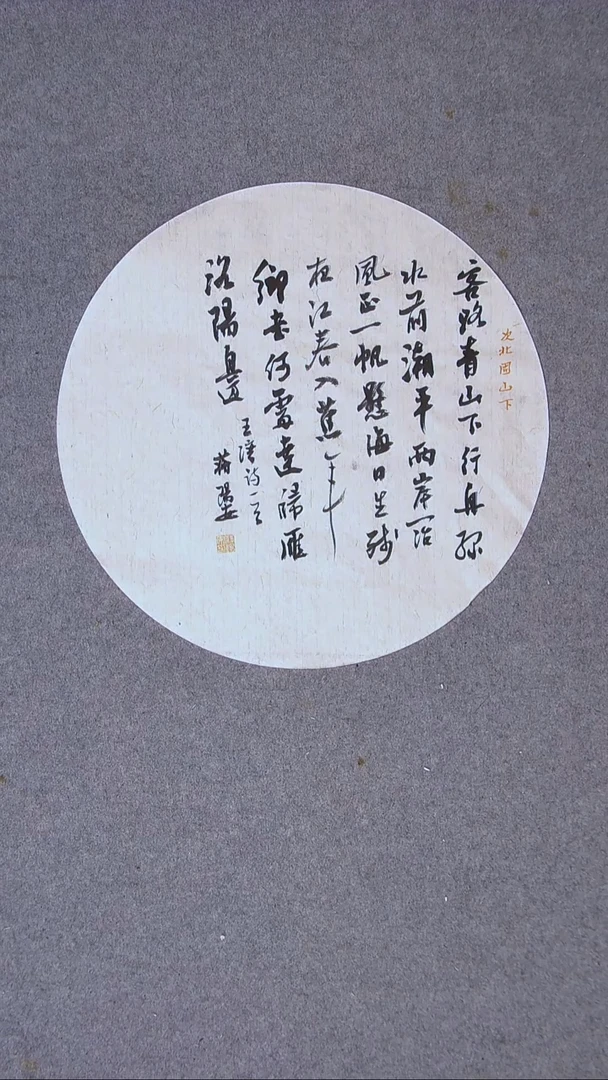 次北固山下
客路青山下行舟綠
水前潮平兩岸闊
風正一帆懸海日生殘
夜江春入舊年
鄉書何處達歸雁
洛陽邊
王灣诗一首